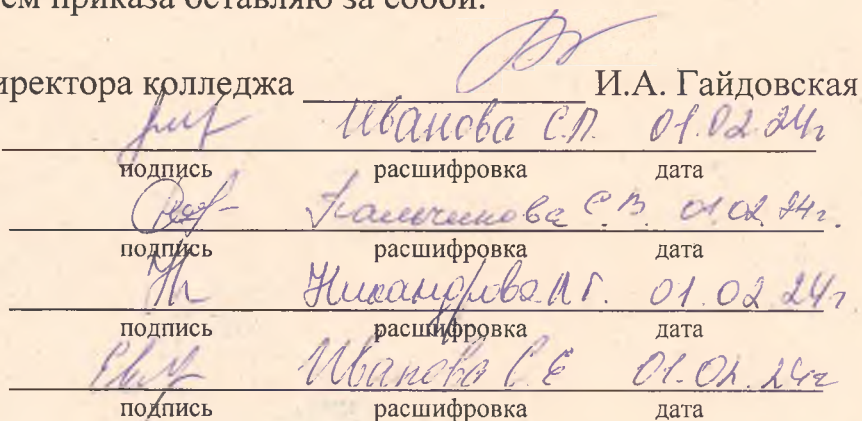 ем приказа оставляю за собой.
иректора колледжа И.А. Гайдовская
Иванова С.П. 01.02.24г
подпись расшифровка дата
С.В. 01.02.24г.
подпись расшифровка дата
Никандрова Л.Г. 01.02.24г
подпись расшифровка дата
Иванова С.Е 01.02.24г
подпись расшифровка дата